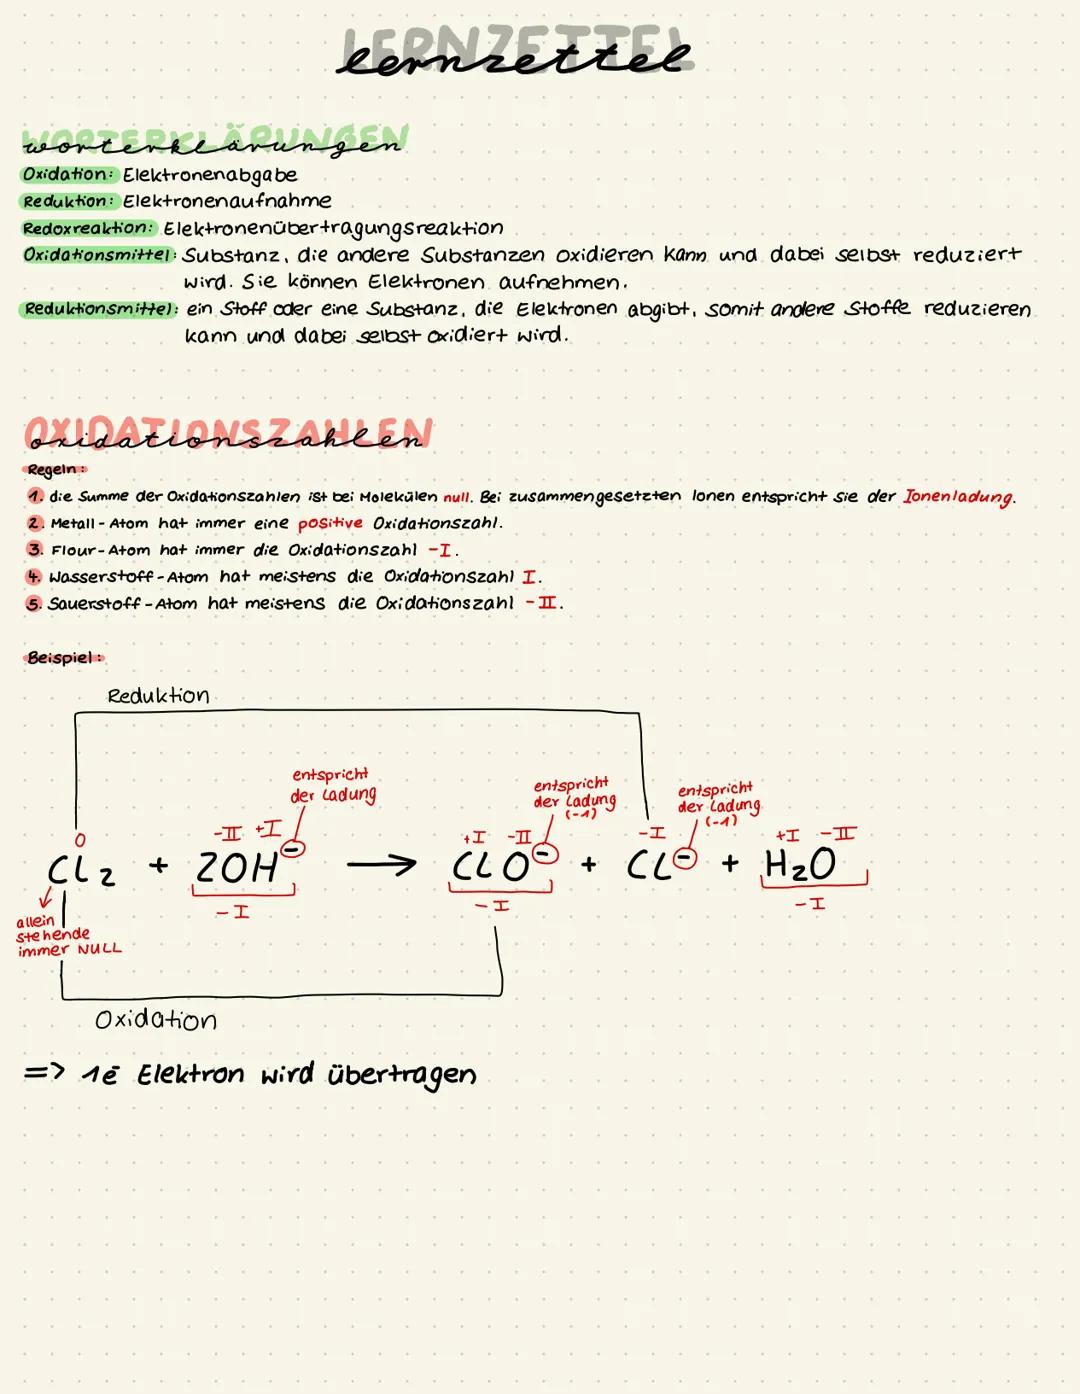 LERNZETTEL
lernzettel
WORTERKLÄRUNGEN
worterklärungen
Oxidation: Elektronenabgabe
Reduktion: Elektronenaufnahme
Redoxreaktion: Elektronenübertragungsreaktion
Oxidationsmittel: Substanz, die andere Substanzen oxidieren kann und dabei selbst reduziert
wird. Sie können Elektronen aufnehmen.
Reduktionsmittel: ein Stoff oder eine Substanz, die Elektronen abgibt, somit andere Stoffe reduzieren
kann und dabei selbst oxidiert wird.
OXIDATIONSZAHLEN
oxidationszahlen
Regeln:
1. die Summe der Oxidationszahlen ist bei Molekülen null. Bei zusammengesetzten Ionen entspricht sie der Ionenladung.
2. Metall-Atom hat immer eine positive Oxidationszahl.
3. Flour-Atom hat immer die Oxidationszahl -I.
4. Wasserstoff-Atom hat meistens die Oxidationszahl I.
5. Sauerstoff-Atom hat meistens die Oxidationszahl -II.
Beispiel:
Reduktion
entspricht
der Ladung
entspricht
der Ladung
(-1)
entspricht
der Ladung
(-1)
0 -II +I +I -II -I +I -II
Cl₂ + 2OH⁻ → ClO⁻ + Cl⁻ + H₂O
-I -I -I
allein
stehende
immer NULL
Oxidation
=> 1e⁻ Elektron wird übertragen